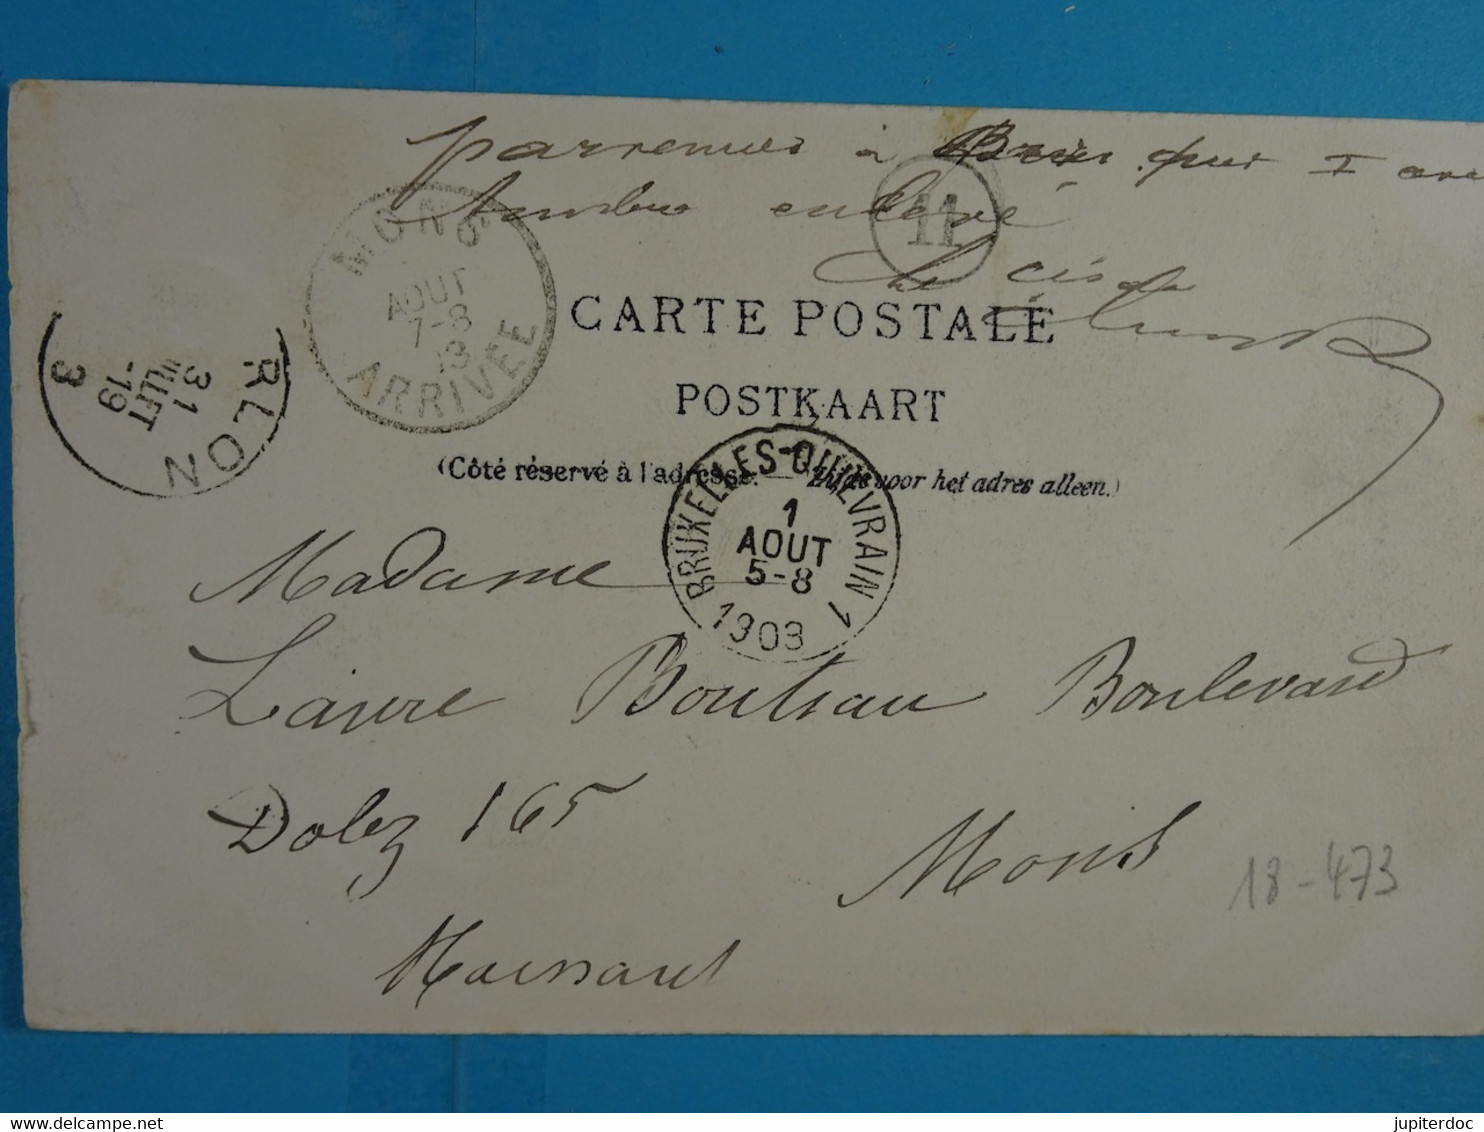 parvenues à
enlevé
11
MONS
AOUT
7-8
ARRIVEE
RLON
31
JUILLET
-19
3
CARTE POSTALE
POSTKAART
(Côté réservé à l'adresse. — Zijde voor het adres alleen.)
BRUXELLES-QUIÉVRAIN 1
1
AOUT
5-8
1903
Madame
Laure Boutrau Boulevard
Dolez 165
Mons
Hainaut
18-473
jupiterdoc